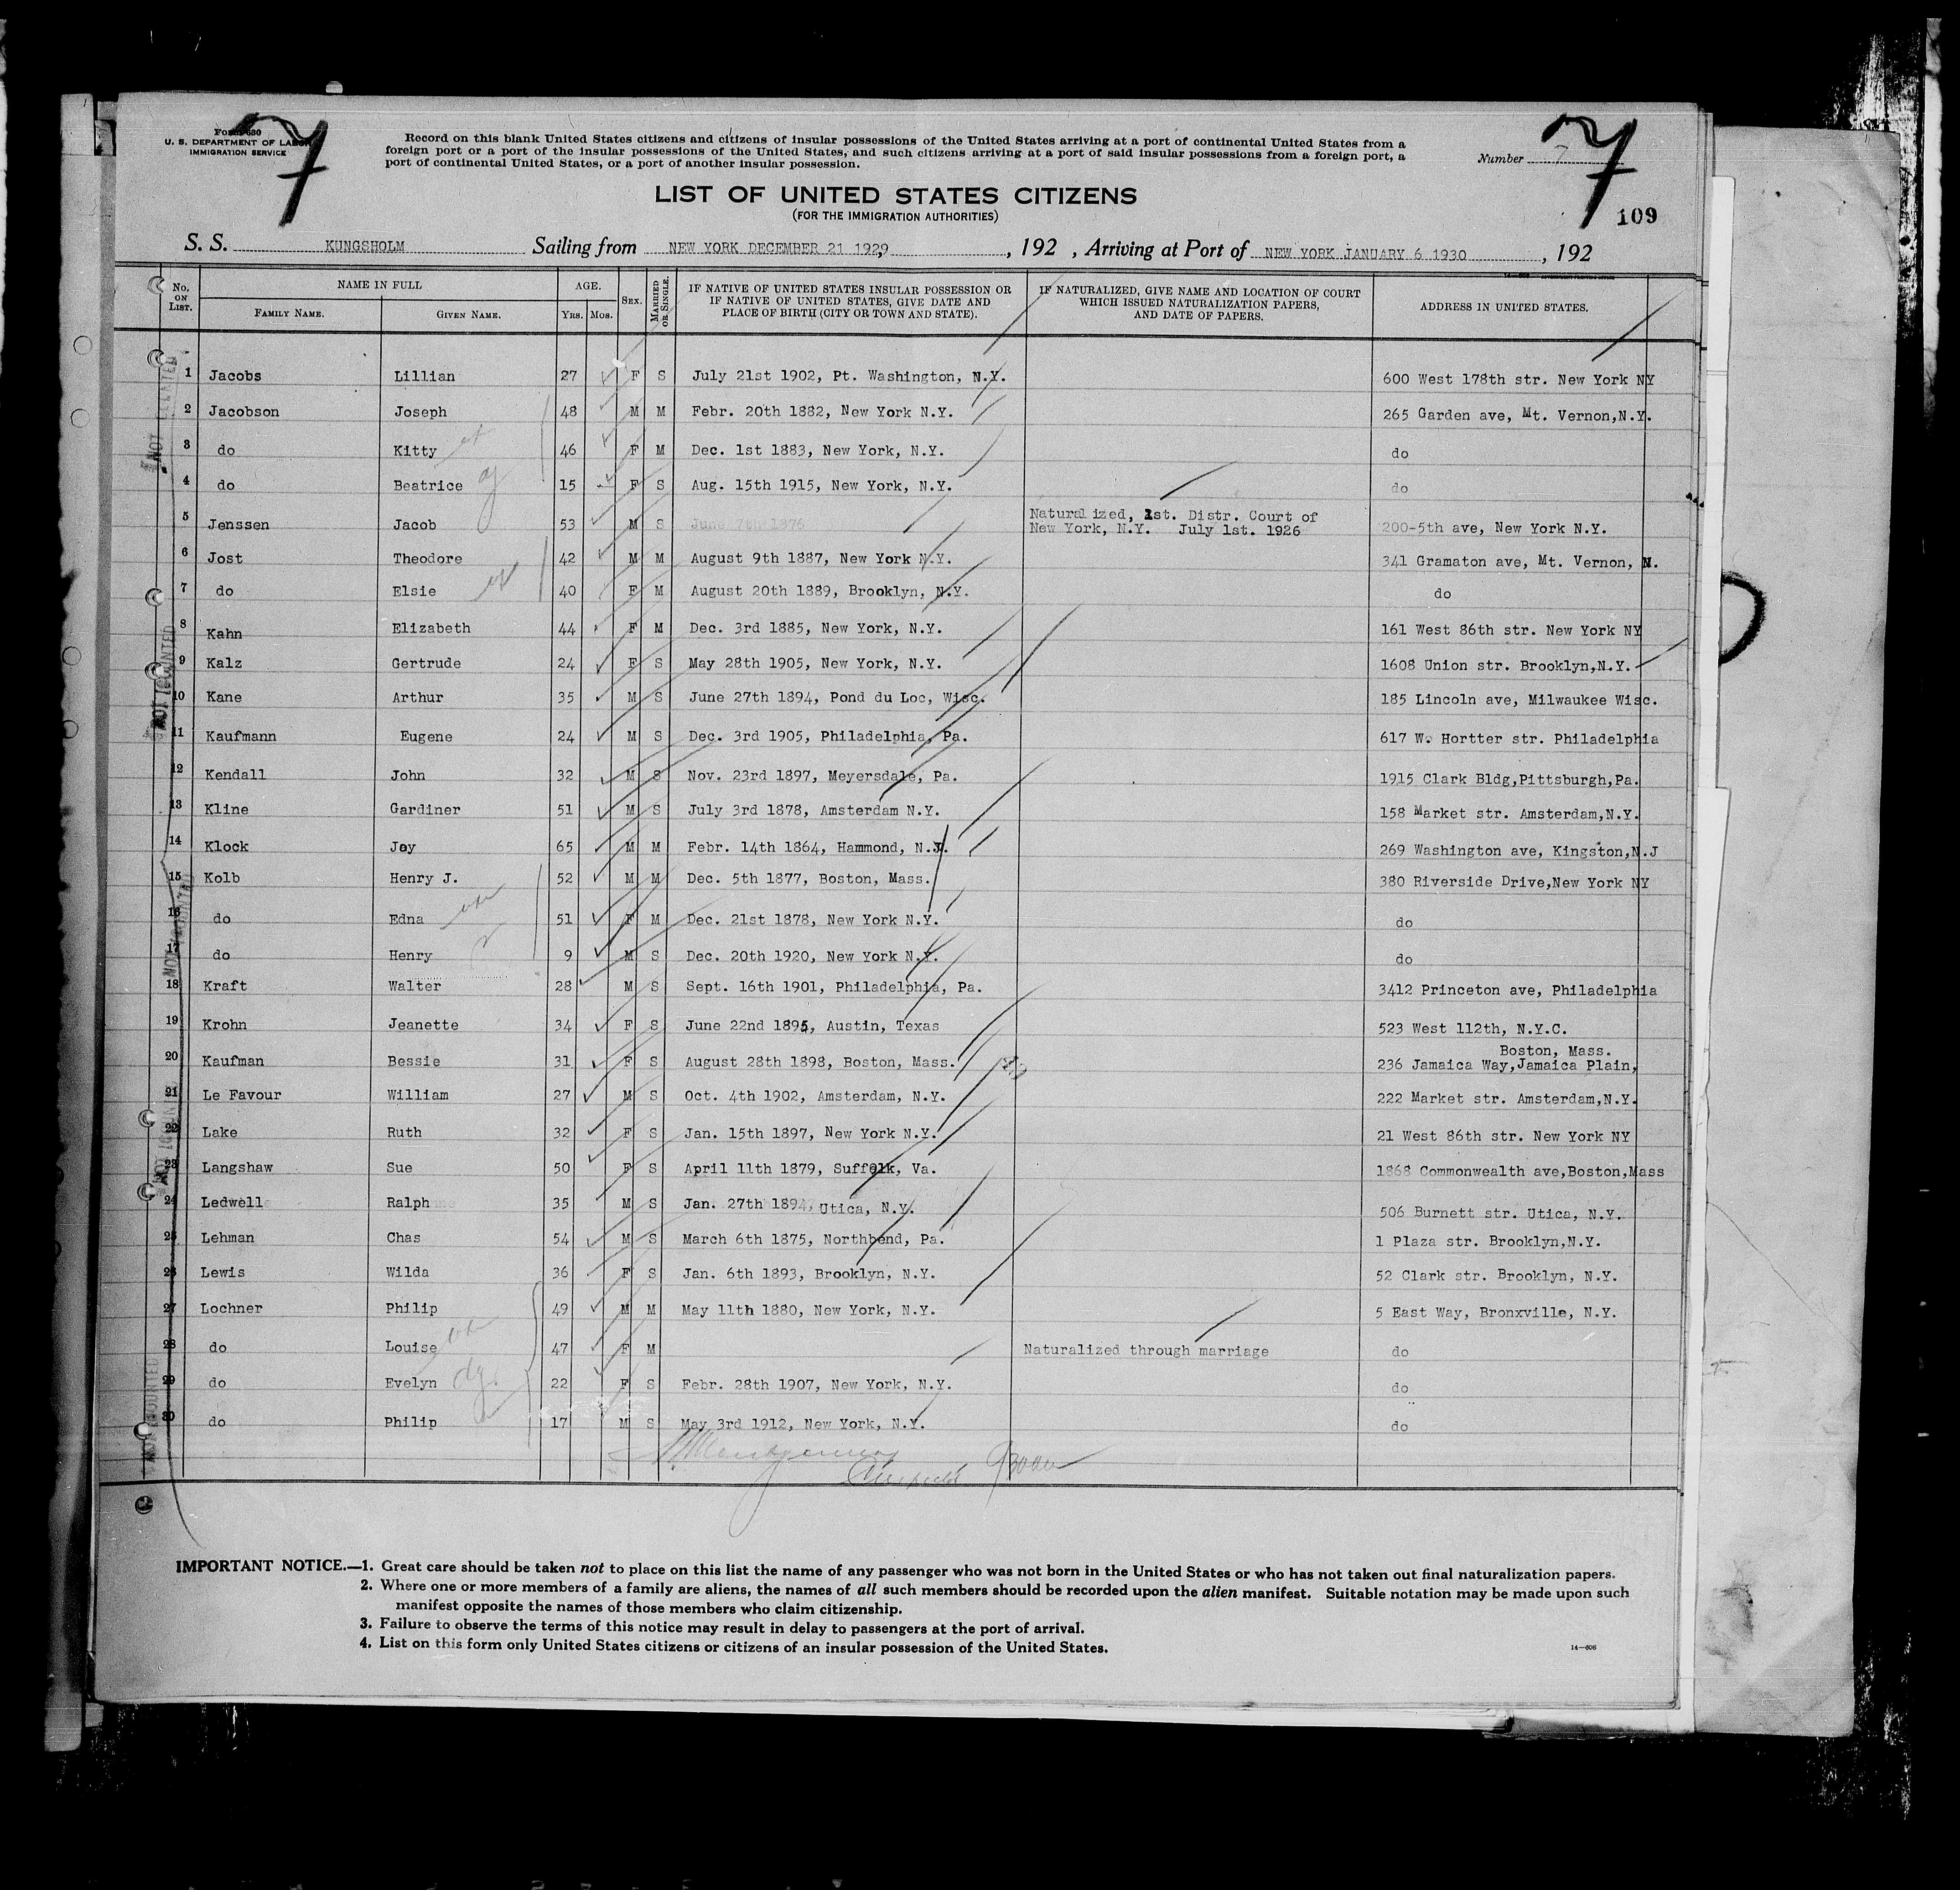 Form 630
U. S. DEPARTMENT OF LABOR
IMMIGRATION SERVICE
7
Record on this blank United States citizens and citizens of insular possessions of the United States arriving at a port of continental United States from a
foreign port or a port of the insular possessions of the United States, and such citizens arriving at a port of said insular possessions from a foreign port, a
port of continental United States, or a port of another insular possession.
Number 7
7
109
LIST OF UNITED STATES CITIZENS
(FOR THE IMMIGRATION AUTHORITIES)
S. S. KUNGSHOLM Sailing from NEW YORK DECEMBER 21 1929, , 192 , Arriving at Port of NEW YORK JANUARY 6 1930 , 192
No. ON LIST. NAME IN FULL FAMILY NAME. GIVEN NAME. AGE. YRS. MOS. SEX. MARRIED OR SINGLE. IF NATIVE OF UNITED STATES INSULAR POSSESSION OR IF NATIVE OF UNITED STATES, GIVE DATE AND PLACE OF BIRTH (CITY OR TOWN AND STATE). IF NATURALIZED, GIVE NAME AND LOCATION OF COURT WHICH ISSUED NATURALIZATION PAPERS, AND DATE OF PAPERS. ADDRESS IN UNITED STATES.
1 Jacobs Lillian 27 F S July 21st 1902, Pt. Washington, N.Y. 600 West 178th str. New York NY
2 Jacobson Joseph 48 M M Febr. 20th 1882, New York N.Y. 265 Garden ave, Mt. Vernon,N.Y.
3 do Kitty 46 F M Dec. 1st 1883, New York, N.Y. do
4 do Beatrice 15 F S Aug. 15th 1915, New York, N.Y. do
5 Jenssen Jacob 53 M S June 7th 1876 Naturalized, 1st. Distr. Court of New York, N.Y. July 1st. 1926 200-5th ave, New York N.Y.
6 Jost Theodore 42 M M August 9th 1887, New York N.Y. 341 Gramaton ave, Mt. Vernon, N.
7 do Elsie 40 F M August 20th 1889, Brooklyn, N.Y. do
8 Kahn Elizabeth 44 F M Dec. 3rd 1885, New York, N.Y. 161 West 86th str. New York NY
9 Kalz Gertrude 24 F S May 28th 1905, New York, N.Y. 1608 Union str. Brooklyn,N.Y.
10 Kane Arthur 35 M S June 27th 1894, Pond du Loc, Wisc. 185 Lincoln ave, Milwaukee Wisc.
11 Kaufmann Eugene 24 M S Dec. 3rd 1905, Philadelphia, Pa. 617 W. Hortter str. Philadelphia
12 Kendall John 32 M S Nov. 23rd 1897, Meyersdale, Pa. 1915 Clark Bldg,Pittsburgh,Pa.
13 Kline Gardiner 51 M S July 3rd 1878, Amsterdam N.Y. 158 Market str. Amsterdam,N.Y.
14 Klock Jay 65 M M Febr. 14th 1864, Hammond, N.J. 269 Washington ave, Kingston,N.J
15 Kolb Henry J. 52 M M Dec. 5th 1877, Boston, Mass. 380 Riverside Drive,New York NY
16 do Edna 51 F M Dec. 21st 1878, New York N.Y. do
17 do Henry 9 M S Dec. 20th 1920, New York N.Y. do
18 Kraft Walter 28 M S Sept. 16th 1901, Philadelphia, Pa. 3412 Princeton ave, Philadelphia
19 Krohn Jeanette 34 F S June 22nd 1895, Austin, Texas 523 West 112th, N.Y.C.
20 Kaufman Bessie 31 F S August 28th 1898, Boston, Mass. 236 Jamaica Way,Jamaica Plain, Boston, Mass.
21 Le Favour William 27 M S Oct. 4th 1902, Amsterdam, N.Y. 222 Market str. Amsterdam,N.Y.
22 Lake Ruth 32 F S Jan. 15th 1897, New York N.Y. 21 West 86th str. New York NY
23 Langshaw Sue 50 F S April 11th 1879, Suffolk, Va. 1868 Commonwealth ave,Boston,Mass
24 Ledwell Ralph 35 M S Jan. 27th 1894, Utica, N.Y. 506 Burnett str. Utica, N.Y.
25 Lehman Chas 54 M S March 6th 1875, Northbend, Pa. 1 Plaza str. Brooklyn,N.Y.
26 Lewis Wilda 36 F S Jan. 6th 1893, Brooklyn, N.Y. 52 Clark str. Brooklyn, N.Y.
27 Lochner Philip 49 M M May 11th 1880, New York, N.Y. 5 East Way, Bronxville, N.Y.
28 do Louise 47 F M Naturalized through marriage do
29 do Evelyn 22 F S Febr. 28th 1907, New York, N.Y. do
30 do Philip 17 M S May 3rd 1912, New York, N.Y. do
IMPORTANT NOTICE.—1. Great care should be taken not to place on this list the name of any passenger who was not born in the United States or who has not taken out final naturalization papers.
2. Where one or more members of a family are aliens, the names of all such members should be recorded upon the alien manifest. Suitable notation may be made upon such
manifest opposite the names of those members who claim citizenship.
3. Failure to observe the terms of this notice may result in delay to passengers at the port of arrival.
4. List on this form only United States citizens or citizens of an insular possession of the United States.
14—606